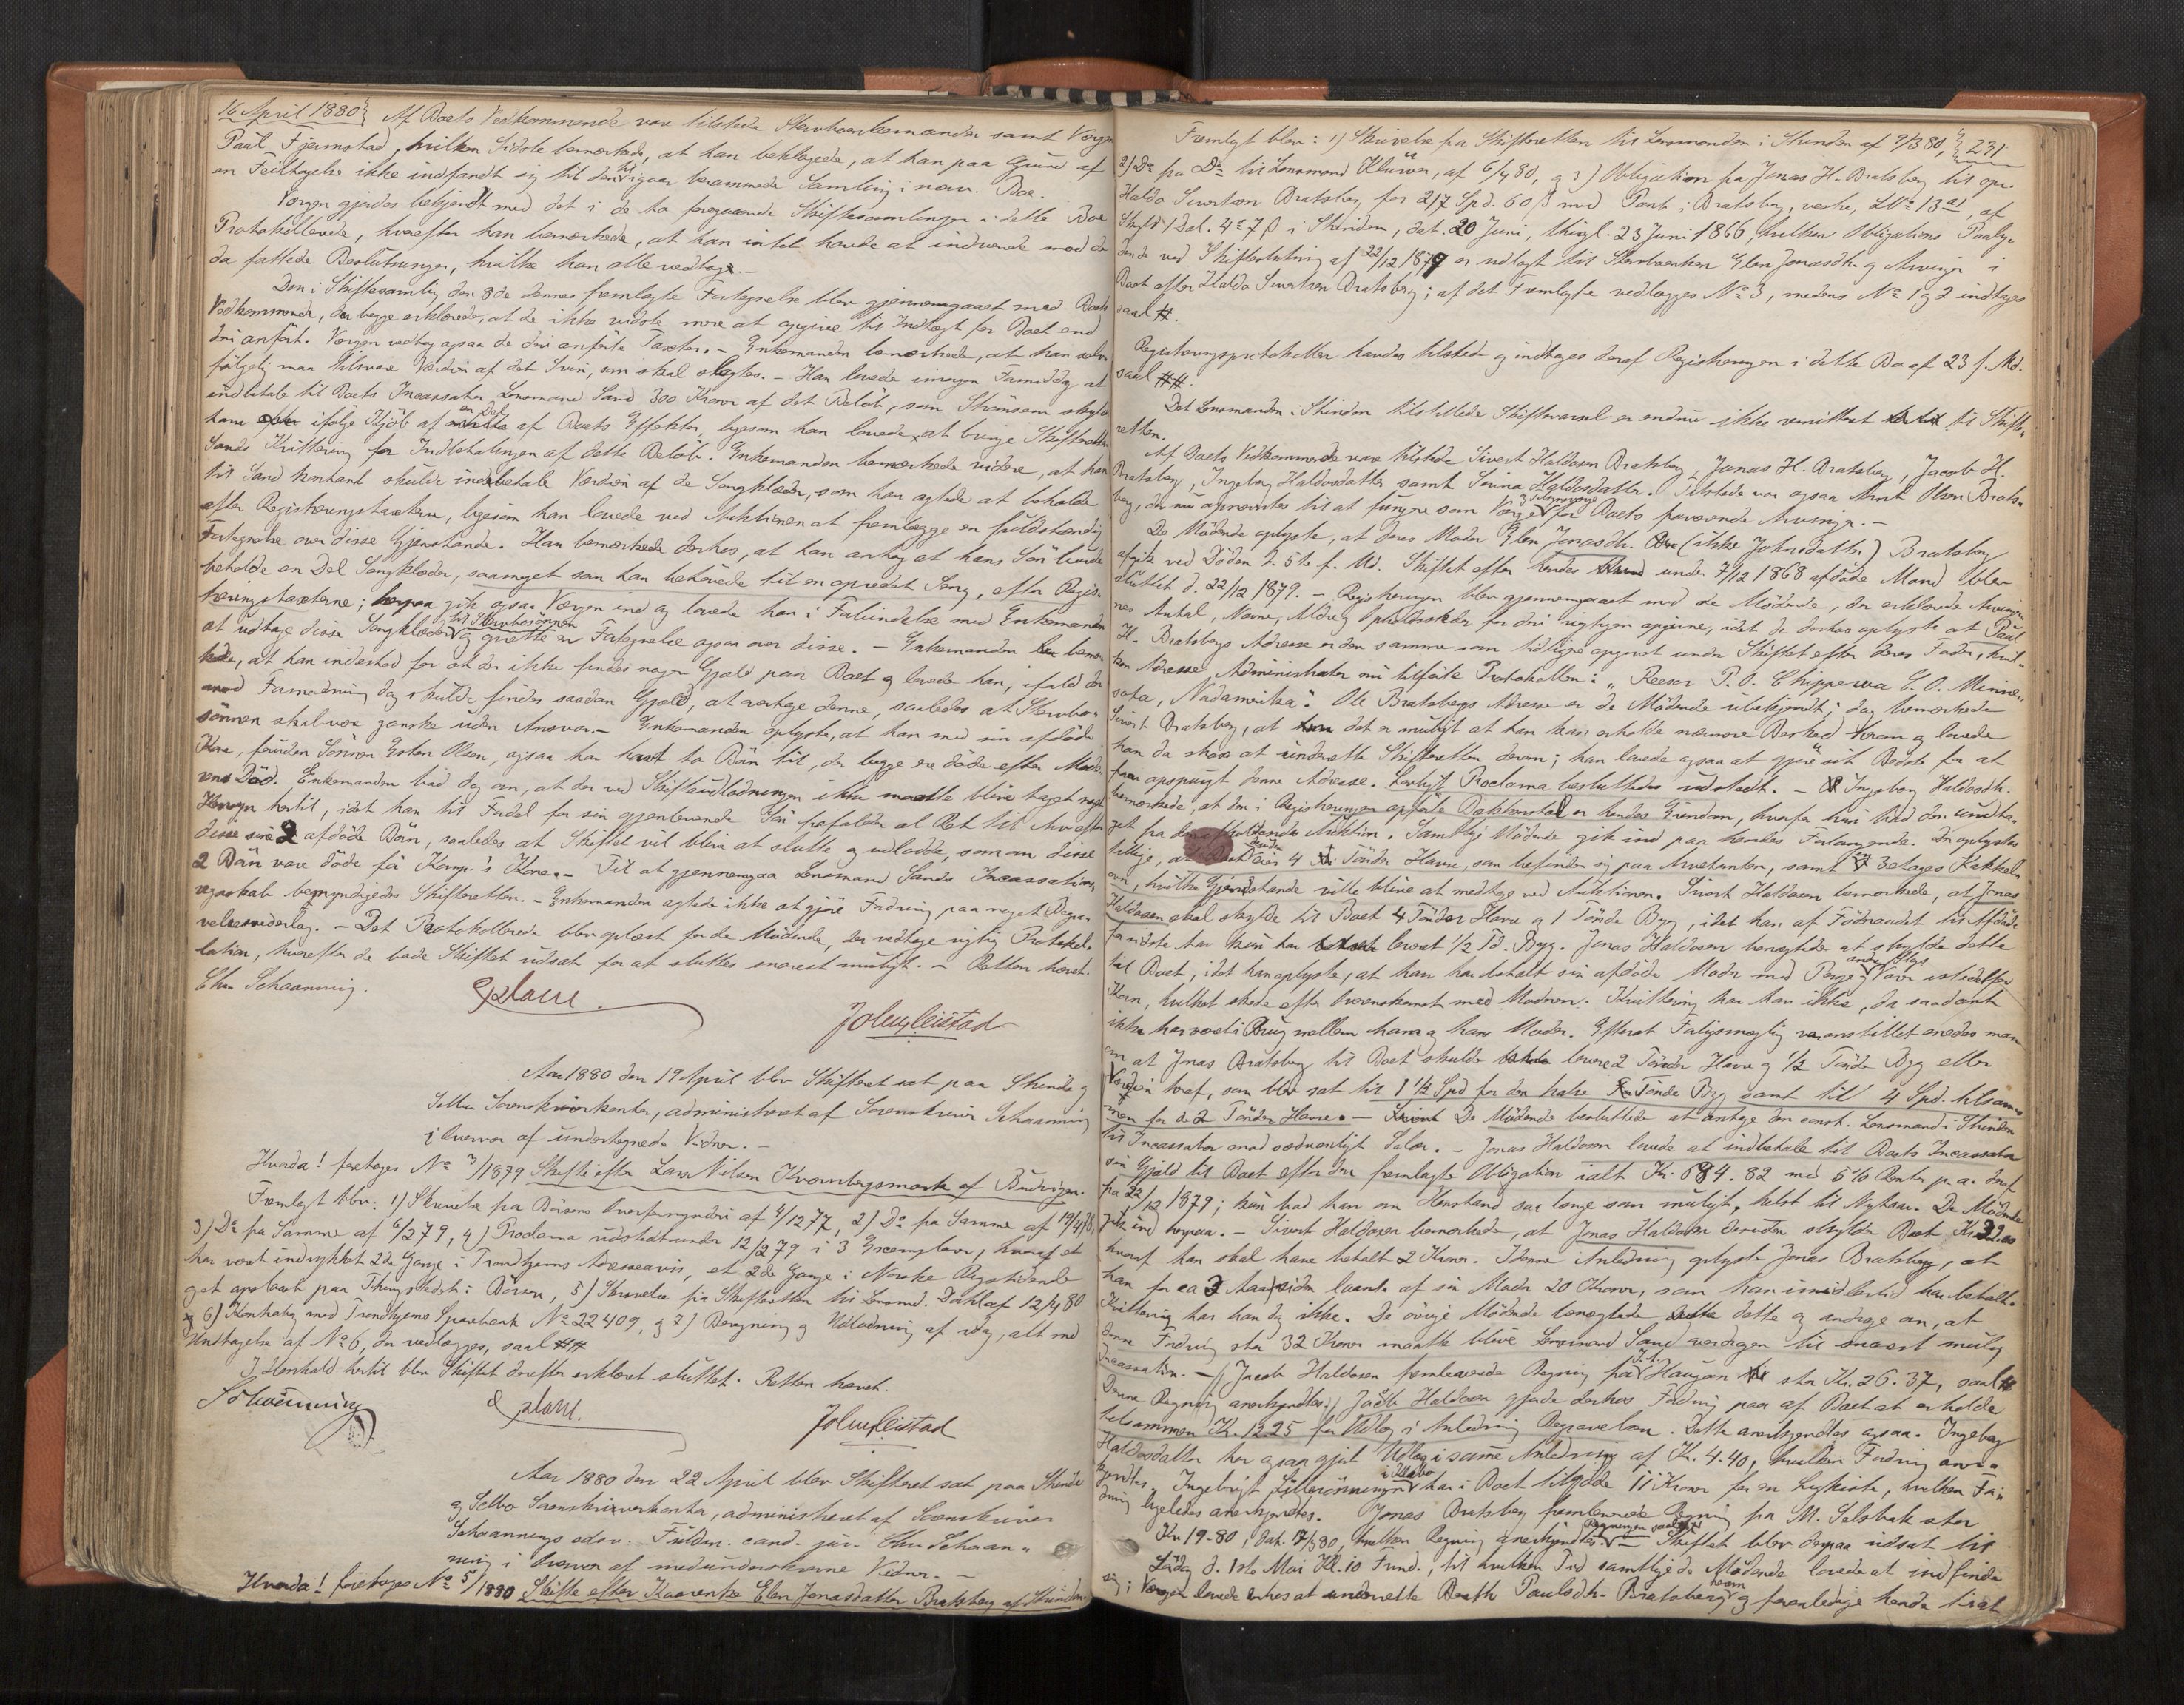 16 April 1880} Af Boets Vedkommende vare tilstede Stervboenkemanden samt Værgen
Paul Fjermstad, hvilken Sidste bemærkede, at han beklagede, at han paa Grund af
en Feiltagelse ikke indfandt sig til den til igaar berammede Samling i nærv. Bo.
Værgen gjordes bekjendt med det i de to foregaaende Skiftesamlinger i dette Bo
Protokollerede, hvorefter han bemærkede, at han intet havde at indvende mod de
da fattede Beslutninger, hvilke han alle vedtog. —
Den i Skiftesamling den 8de dennes fremlagte Fortegnelse blev gjennemgaaet med Boets
Vedkommende, der begge erklærede, at de ikke vidste mere at opgive til Indtægt for Boet end
deri anført. Værgen vedtog ogsaa de deri anførte Taxter. — Enkemanden bemærkede, at han selv
følgelig maa tilsvare Værdien af det Svin, som skal slagtes. — Han lovede imorgen Formiddag at
indbetale til Boets Incassator Lensmand Sand 300 Kroner af det Beløb, som skylder
ham ifølge Kjøb af en Del af Boets Effekter, ligesom han lovede at bringe Skifteretten
Sands Kvittering for Indbetalingen af dette Beløb. Enkemanden bemærkede videre, at han
til Sand kontant skulde indbetale Værdien af de Sengklæder, som han agtede at beholde
efter Registreringstaxterne, ligesom han lovede ved Auktionen at fremlægge en fuldstændig
Fortegnelse over disse Gjenstande. Han bemærkede derhos, at han antog at hans Søn burde
beholde en Del Sengklæder, saameget som han behøvede til en opredet Seng, efter Regis-
treringstaxterne; herpaa gik ogsaa Værgen ind og lovede han i Forbindelse med Enkemanden
at udtage disse Sengklæder til Stervbosønnen og opsætte en Fortegnelse ogsaa over disse. — Enkemanden bemær-
kede, at han indestod for at der ikke findes nogen Gjæld paa Boet og lovede han, ifald der
mod Formodning dog skulde findes saadan Gjæld, at overtage denne, saaledes at Stervbo-
sønnen skal være ganske uden Ansvar. — Enkemanden oplyste, at han med sin afdøde
Kone, foruden Sønnen Esten Olsen, ogsaa har havt to Børn til, der begge ere døde efter Mode-
rens Død. Enkemanden bad dog om, at der ved Skifteudlodningen ikke maatte blive taget noget
Hensyn hertil, idet han til Fordel for sin gjenlevende Søn frafalder al Ret til Arv efter
disse sine 2 afdøde Børn, saaledes at Skiftet vil blive at slutte og udlodde, som om disse
2 Børn vare døde før Komp.'s Kone. — Til at gjennemgaa Lensmand Sands Incassations-
regnskab bemyndigedes Skifteretten. — Enkemanden agtede ikke at gjøre Fordring paa noget Begra-
velsesvederlag. — Det Protokollerede blev oplæst for de Mødende, der vedtoge rigtig Protokol-
lation, hvorefter de bade Skiftet udsat for at sluttes snarest muligt. — Retten hævet.
Chr. Schaanning.
Aar 1880 den 19 April blev Skifteret sat paa Strinde og
Selbu Sorenskriverkontor, administreret af Sorenskriver Schaanning
i Overvær af undertegnede Vidner. —
Hvorda! foretoges No 3/1879 Skifte efter Lars Nilsen Kvambergsmark af Budvigen.
Fremlagt blev: 1) Skrivelse fra Børsens Overformynderi af 4/12 77, 2) Do fra Samme af 19/4 78,
3) Do fra Samme af 6/2 79, 4) Proclama udstedt under 12/2 79 i 3 Exemplarer, hvoraf et
har været indrykket 2de Gange i Trondhjems Adresseavis, et 2de Gange i Norske Rigstidende
og et oplæst paa Thingstedet i Børsen, 5) Skrivelse fra Skifteretten til Lensmd. Dahl af 12/4 80
6) Kontrabog med Trondhjems Sparebank No 22409, og 7) Beregning og Udlodning af idag, alt med
Undtagelse af No 6, der vedlægges, saal. ###
I Henhold hertil blev Skiftet derefter erklæret sluttet. Retten hævet.
Schaanning
Aar 1880 den 22 April blev Skifteret sat paa Strinde
og Selbo Sorenskriverkontor, administreret af Sorenskriver
Schaannings edsv. Fuldm. cand. jur. Chr. Schaan-
ning i Overvær af medunderskrevne Vidner. —
Hvorda! foretoges No 5/1880 Skifte efter Kaarenke Elen Jonasdatter Bratsberg af Strinden.
231
Fremlagt blev: 1) Skrivelse fra Skifteretten til Lensmanden i Strinden af 9/3 80,
2) Do fra Do til Lensmand Klüwer, af 6/4 80, og 3) Obligation fra Jonas H. Bratsberg til opr.
Haldo Sivertsen Bratsberg for 217 Spd. 60 β med Pant i Bratsberg, vestre, LNo 13 a1, af
Skyld 1 Dal. 4 7 β i Strinden, dat. 20 Juni, thingl. 23 Juni 1866, hvilken Obligations Paaly-
dende ved Skifteslutning af 22/12 1879 er udlagt til Stervboenken Elen Jonasdtr. og Arvinger i
Boet efter Haldo Sivertsen Bratsberg; af det Fremlagte vedlægges No 3, medens No 1 og 2 indtages
saal. #.
Registreringsprotokollen havdes tilstede og indtages deraf Registreringen i dette Bo af 23 f. Md.
saal. ##.
Det Lensmanden i Strinden tilstillede Skiftevarsel er endnu ikke remitteret til Skifte-
retten.
Af Boets Vedkommende vare tilstede Sivert Haldosen Bratsberg, Jonas H. Bratsberg, Jacob H.
Bratsberg, Ingeborg Haldosdatter samt Haldosdatter. Tilstede var ogsaa Arnt Olsen Brats-
berg, der nu opnævntes til at fungere som Værge for Boets fraværende Arvinger. —
De Mødende oplyste, at deres Moder Elen Jonasdtr. (ikke Johnsdatter) Bratsberg
afgik ved Døden d. 5te f. Md. Skiftet efter hendes under 7/12 1868 afdøde Mand blev
sluttet d. 22/12 1879. — Registreringen blev gjennemgaaet med de Mødende, der erklærede Arvinger-
nes Antal, Navne, Alder og Opholdssteder for deri rigtigen opgivne, idet de derhos oplyste at Paul
H. Bratsbergs Adresse er den samme som tidligere opgivet under Skiftet efter deres Fader, hvil-
ken Adresse Administrator nu tilførte Protokollen: „Reeser P. O. Chippewa C. O. Minne-
sota, Nordamerika". Ole Bratsbergs Adresse er de Mødende ubekjendt; dog bemærkede
Sivert Bratsberg, at det er muligt at han kan erholde nærmere Besked herom og lovede
han da strax at underrette Skifteretten derom; han lovede ogsaa at gjøre sit Bedste for at
faa opspurgt denne Adresse. Lovligt Proclama besluttedes udstedt. — Ingeborg Haldosdtr.
bemærkede, at den i Registreringen opførte er hendes Eiendom, hvorfor hun bad den undta-
get fra den afholdendes Auktion. Samtlige Mødende gik ind paa hendes Forlangende. De oplystes
tillige, at Boet eier 4 Tønder Havre, som befinder sig paa Arvetomten, samt en 3 etages Kakkel-
ovn, hvilke Gjenstande ville blive at medtage ved Auktionen. Sivert Haldosen bemærkede, at Jonas
Haldosen skal skylde til Boet 4 Tønder Havre og 1 Tønde Byg, idet han af Føderaadet til Afdøde
for sidste Aar kun har leveret 1/2 Td. Byg. Jonas Haldosen benægtede at skylde dette
til Boet, idet han oplyste, at han har betalt sin afdøde Moder med Penge og andre Slags Varer istedetfor
Korn, hvilket skede efter Overenskomst med Moderen. Kvittering har han ikke, da saadant
ikke har været i Brug mellem ham og hans Moder. Efterat Forligsmægling var anstillet enedes man
om at Jonas Bratsberg til Boet skulde levere 2 Tønder Havre og 1/2 Tønde Byg eller
Værdien heraf, som blev sat til 1 1/2 Spd for den halve Tønde Byg samt til 4 Spd. tilsam-
men for de 2 Tønder Havre. — De Mødende besluttede at antage den const. Lensmand i Strinden
til Incassator mod sædvanligt Salær. — Jonas Haldosen lovede at indbetale til Boets Incassator
sin Gjæld til Boet efter den fremlagte Obligation ialt Kr. 684.82 med 5 % Rente p. a. deraf
fra 22/12 1879; kun bad han om Henstand saa længe som muligt, helst til Nytaar. De Mødende
gik ind herpaa. — Sivert Haldosen bemærkede, at Jonas Haldosen desuden skylder Boet Kr. 32.00
hvoraf han skal have betalt 2 Kroner. I denne Anledning oplyste Jonas Bratsberg, at
han for ca 3 Aar siden laante af sin Moder 20 Kroner, som han imidlertid har betalt.
Kvittering har han dog ikke. De øvrige Mødende benægtede dette og androge om, at
denne Fordring stor 32 Kroner maatte blive Lensmand Sand overdragen til snarest mulig
Incassation. — Jacob Haldosen fremleverede Regning fra J. A. Haugan stor Kr. 26.37, saal. #
Denne Regning anerkjendtes. Jacob Haldosen gjorde derhos Fordring paa af Boet at erholde
tilsammen Kr. 12.25 for Udlæg i Anledning Begravelsen. Dette anerkjendtes ogsaa. Ingeborg
Haldosdatter har ogsaa gjort Udlæg i samme Anledning af Kr. 4.40, hvilken Fordring aner-
kjendtes. Ingebrigt i Klæbo har i Boet tilgode 11 Kroner for en Ligkiste, hvilken For-
dring ligeledes anerkjendtes. Jonas Bratsberg fremleverede Regning fra M. Selsbak stor
Kr. 19-80, dat. 17/3 80, hvilken Regning anerkjendtes. Regningen saal. — Skiftet blev derpaa udsat til
Lørdag d. 1ste Mai Kl. 10 Formd., til hvilken Tid samtlige de Mødende lovede at indfinde
sig; Værgen lovede derhos at underrette Berith Paulsdtr. Bratsberg herom og foranledige hende til at